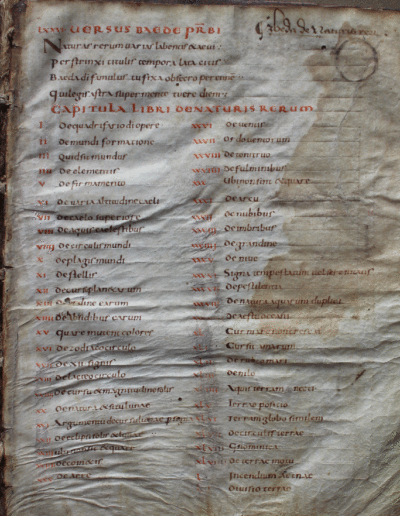 VERSUS BAEDE PRBI
Naturas rerum varias labentis & aevi
Perstrinxi titulis tempora lata citis
Baeda di famulus tu fixa obsecro perenne
Qui legis astra super mente tuere diem
CAPITULA LIBRI DE NATURIS RERUM
I De quadrifario di opere
II De mundi formatione
III Quid sit mundus
IIII De elementis
V De firmamento
VI De varia altitudine caeli
VII De caelo superiore
VIII De aquis caelestibus
VIIII De circulis mundi
X De plagis mundi
XI De stellis
XII De cursu planetarum
XIII De ordine earum
XIIII De absidibus earum
XV Quare mutent colores
XVI De zodiaco circulo
XVII De XII signis
XVIII De lacteo circulo
De cursu & magnitudine solis
XX De natura & situ lunae
XXI Argumentum de cursu lunae
XXII De eclipsi solis & lunae
De cometis
XXV De aere
XXVI De ventis
XXVII Ordo ventorum
XXVIII De tonitruo
XXVIIII De fulminibus
XXX Ubi non sint & quare
XXXI De arcu
XXXII De nubibus
XXXIII De imbribus
XXXIIII De grandine
XXXV De nive
XXXVI Signa tempestatum vel serenitatis
XXXVII De pestilentia
XXXVIII De natura aquarum duplici
De aestu oceani
XL Cur mare non crescat
Cur sit amarum
De rubro mari
De nilo
Aquis terram
Terrae positio
Terram globo similem
De circulis terrae
Gnomonica
De terrae motu
Incendium aetnae
Divisio terrae